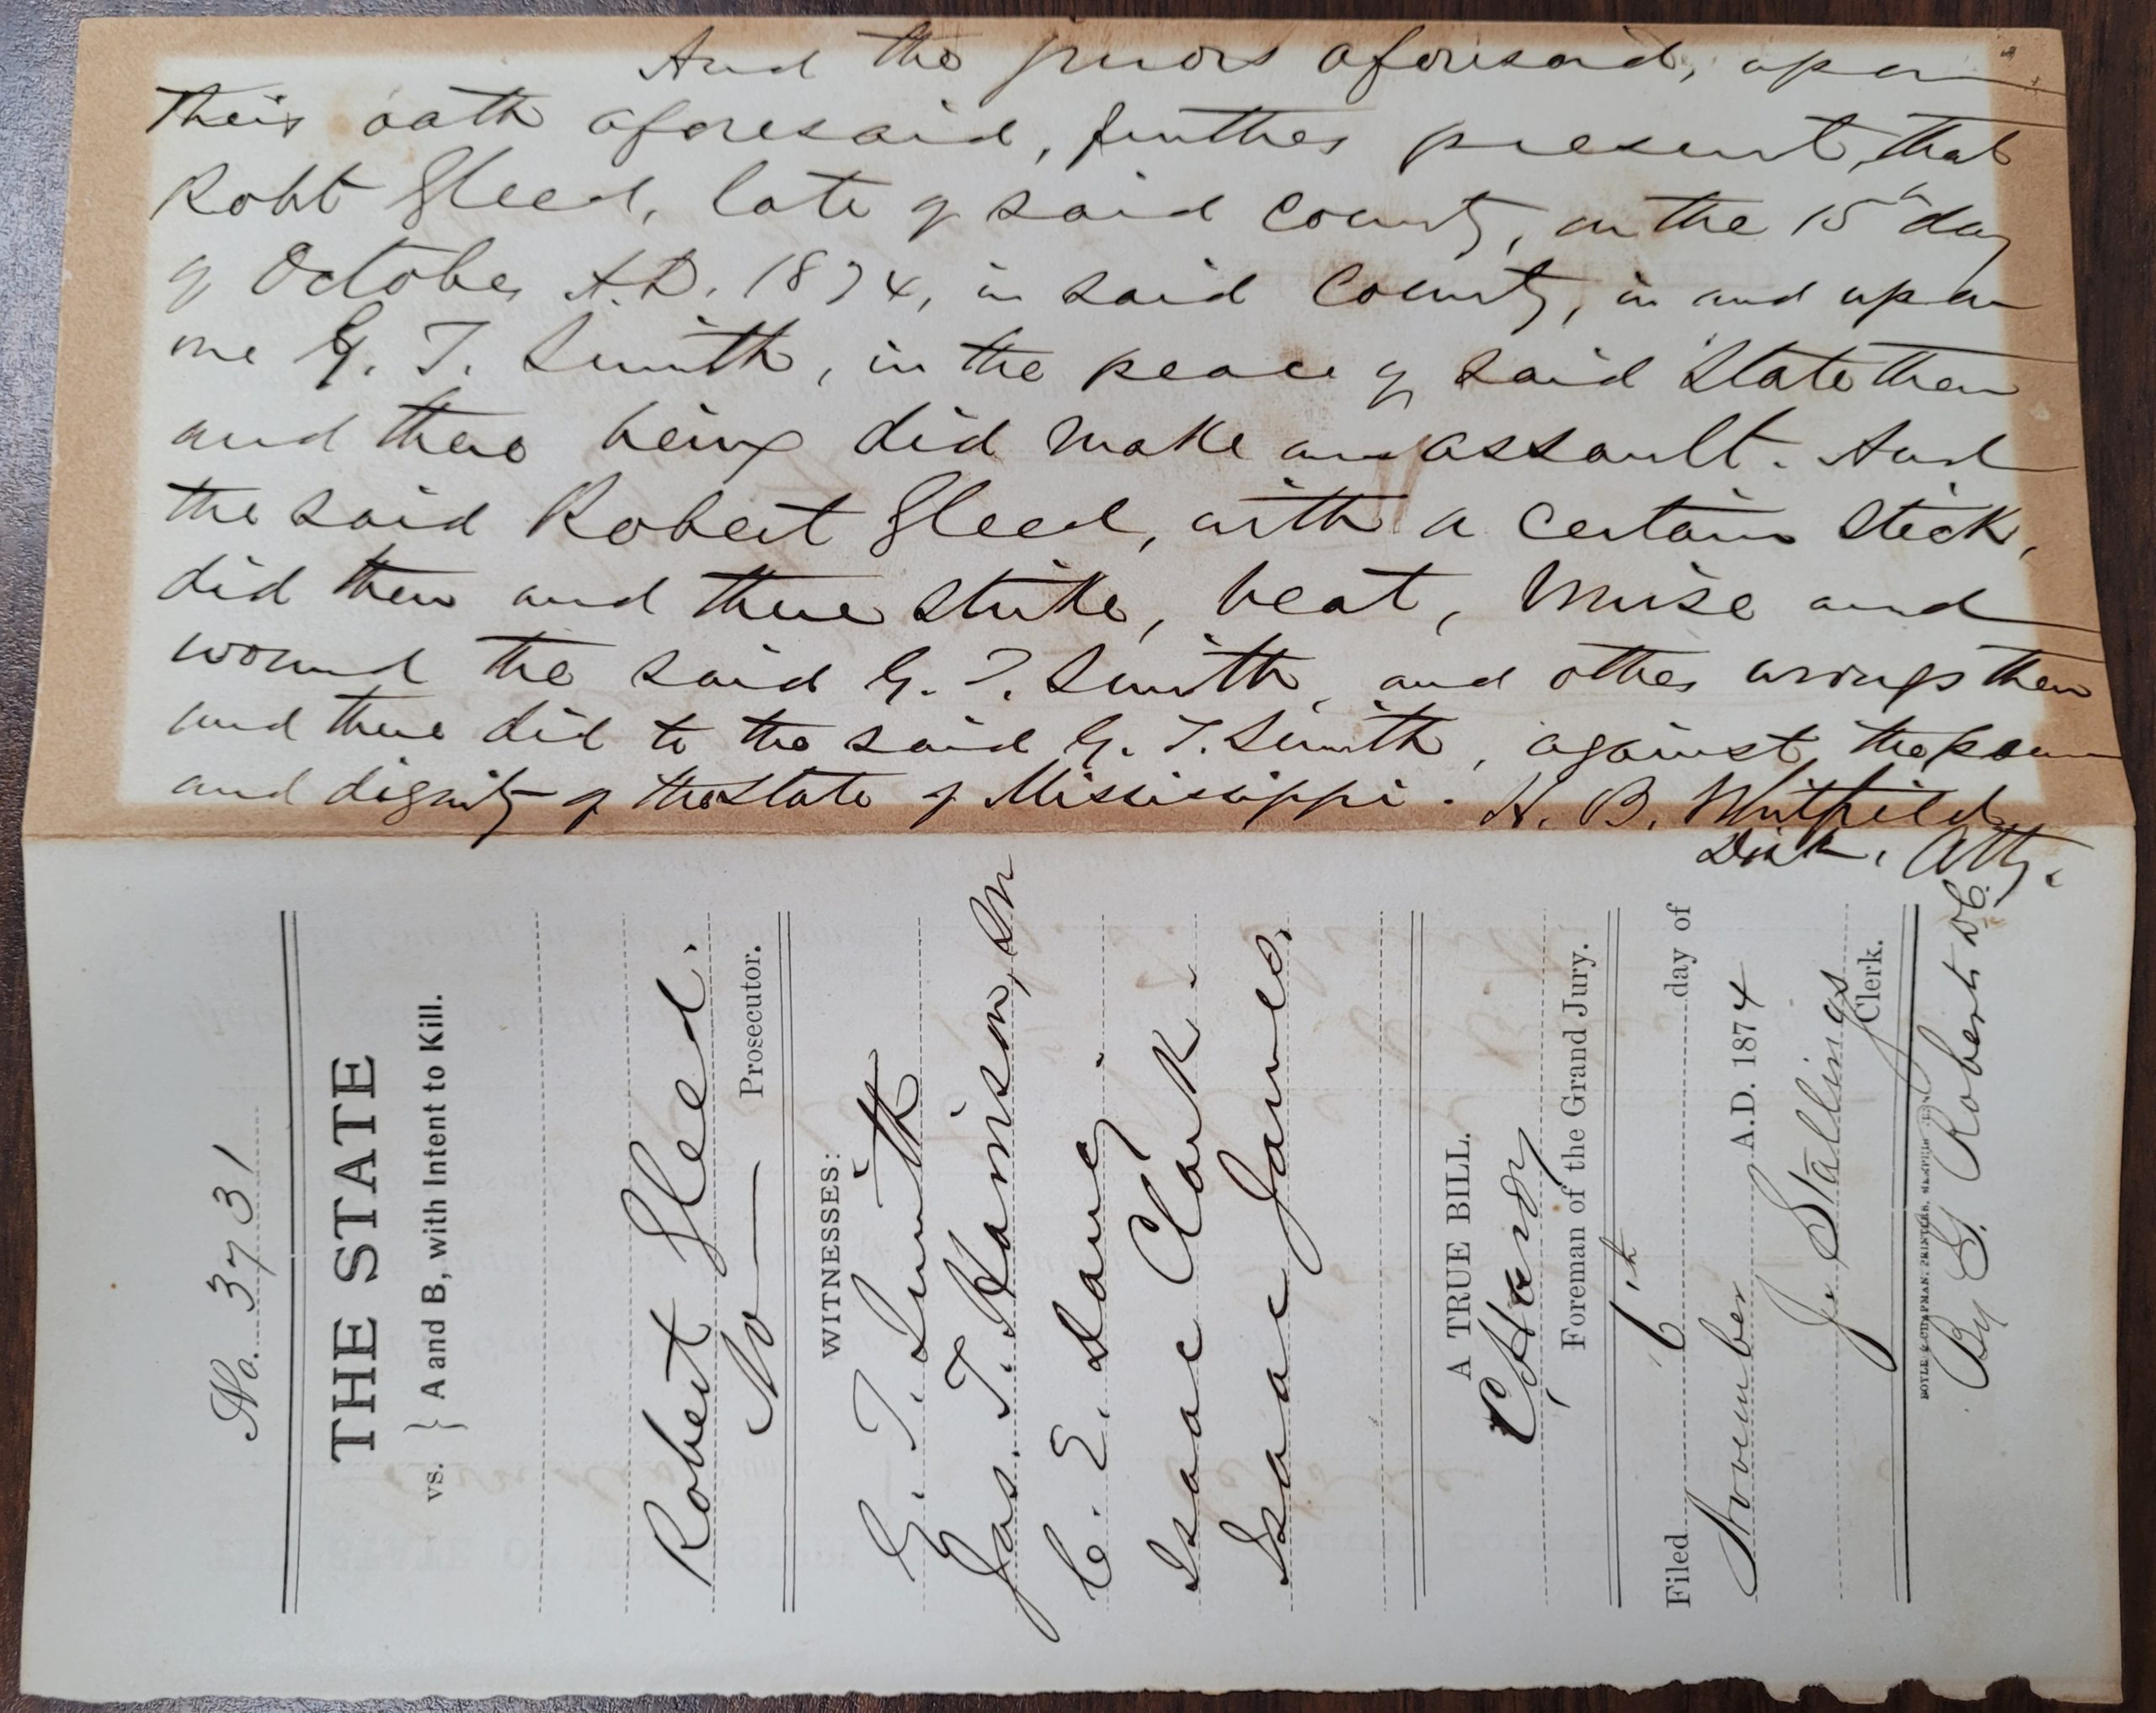 And the jurors aforesaid, upon
their oath aforesaid, further present, that
Robt Gleed, late of said County, on the 15th day
of October A.D. 1874, in said County, in and upon
one G. T. Smith, in the peace of said State then
and there being did make an assault. And
the said Robert Gleed, with a certain stick,
did then and there strike, beat, bruise and
wound the said G. T. Smith, and other wrongs then
and there did to the said G. T. Smith, against the peace
and dignity of the State of Mississippi. H. B. Whitfield
Dist. Atty.
No. 3731
THE STATE
vs. } A and B, with Intent to Kill.
Robert Gleed.
No — Prosecutor.
WITNESSES:
G. T. Smith
Jas. T. Harrison, Sr
C. E. Laney
Isaac Clark.
Isaac James.
A TRUE BILL.
C Hardy
Foreman of the Grand Jury.
Filed 6th day of
November A.D. 1874
Stallings
Clerk.
BOYLE & CHAPMAN, PRINTERS, MEMPHIS
By G. Roberts D.C.